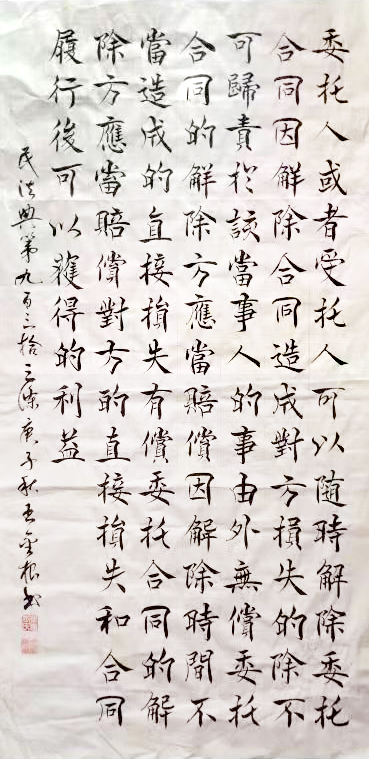 委托人或者受托人可以隨時解除委托
合同因解除合同造成對方損失的除不
可歸責於該當事人的事由外無償委托
合同的解除方應當賠償因解除時間不
當造成的直接損失有償委托合同的解
除方應當賠償對方的直接損失和合同
履行後可以獲得的利益
民法典第九百三拾三條庚子秋金根书